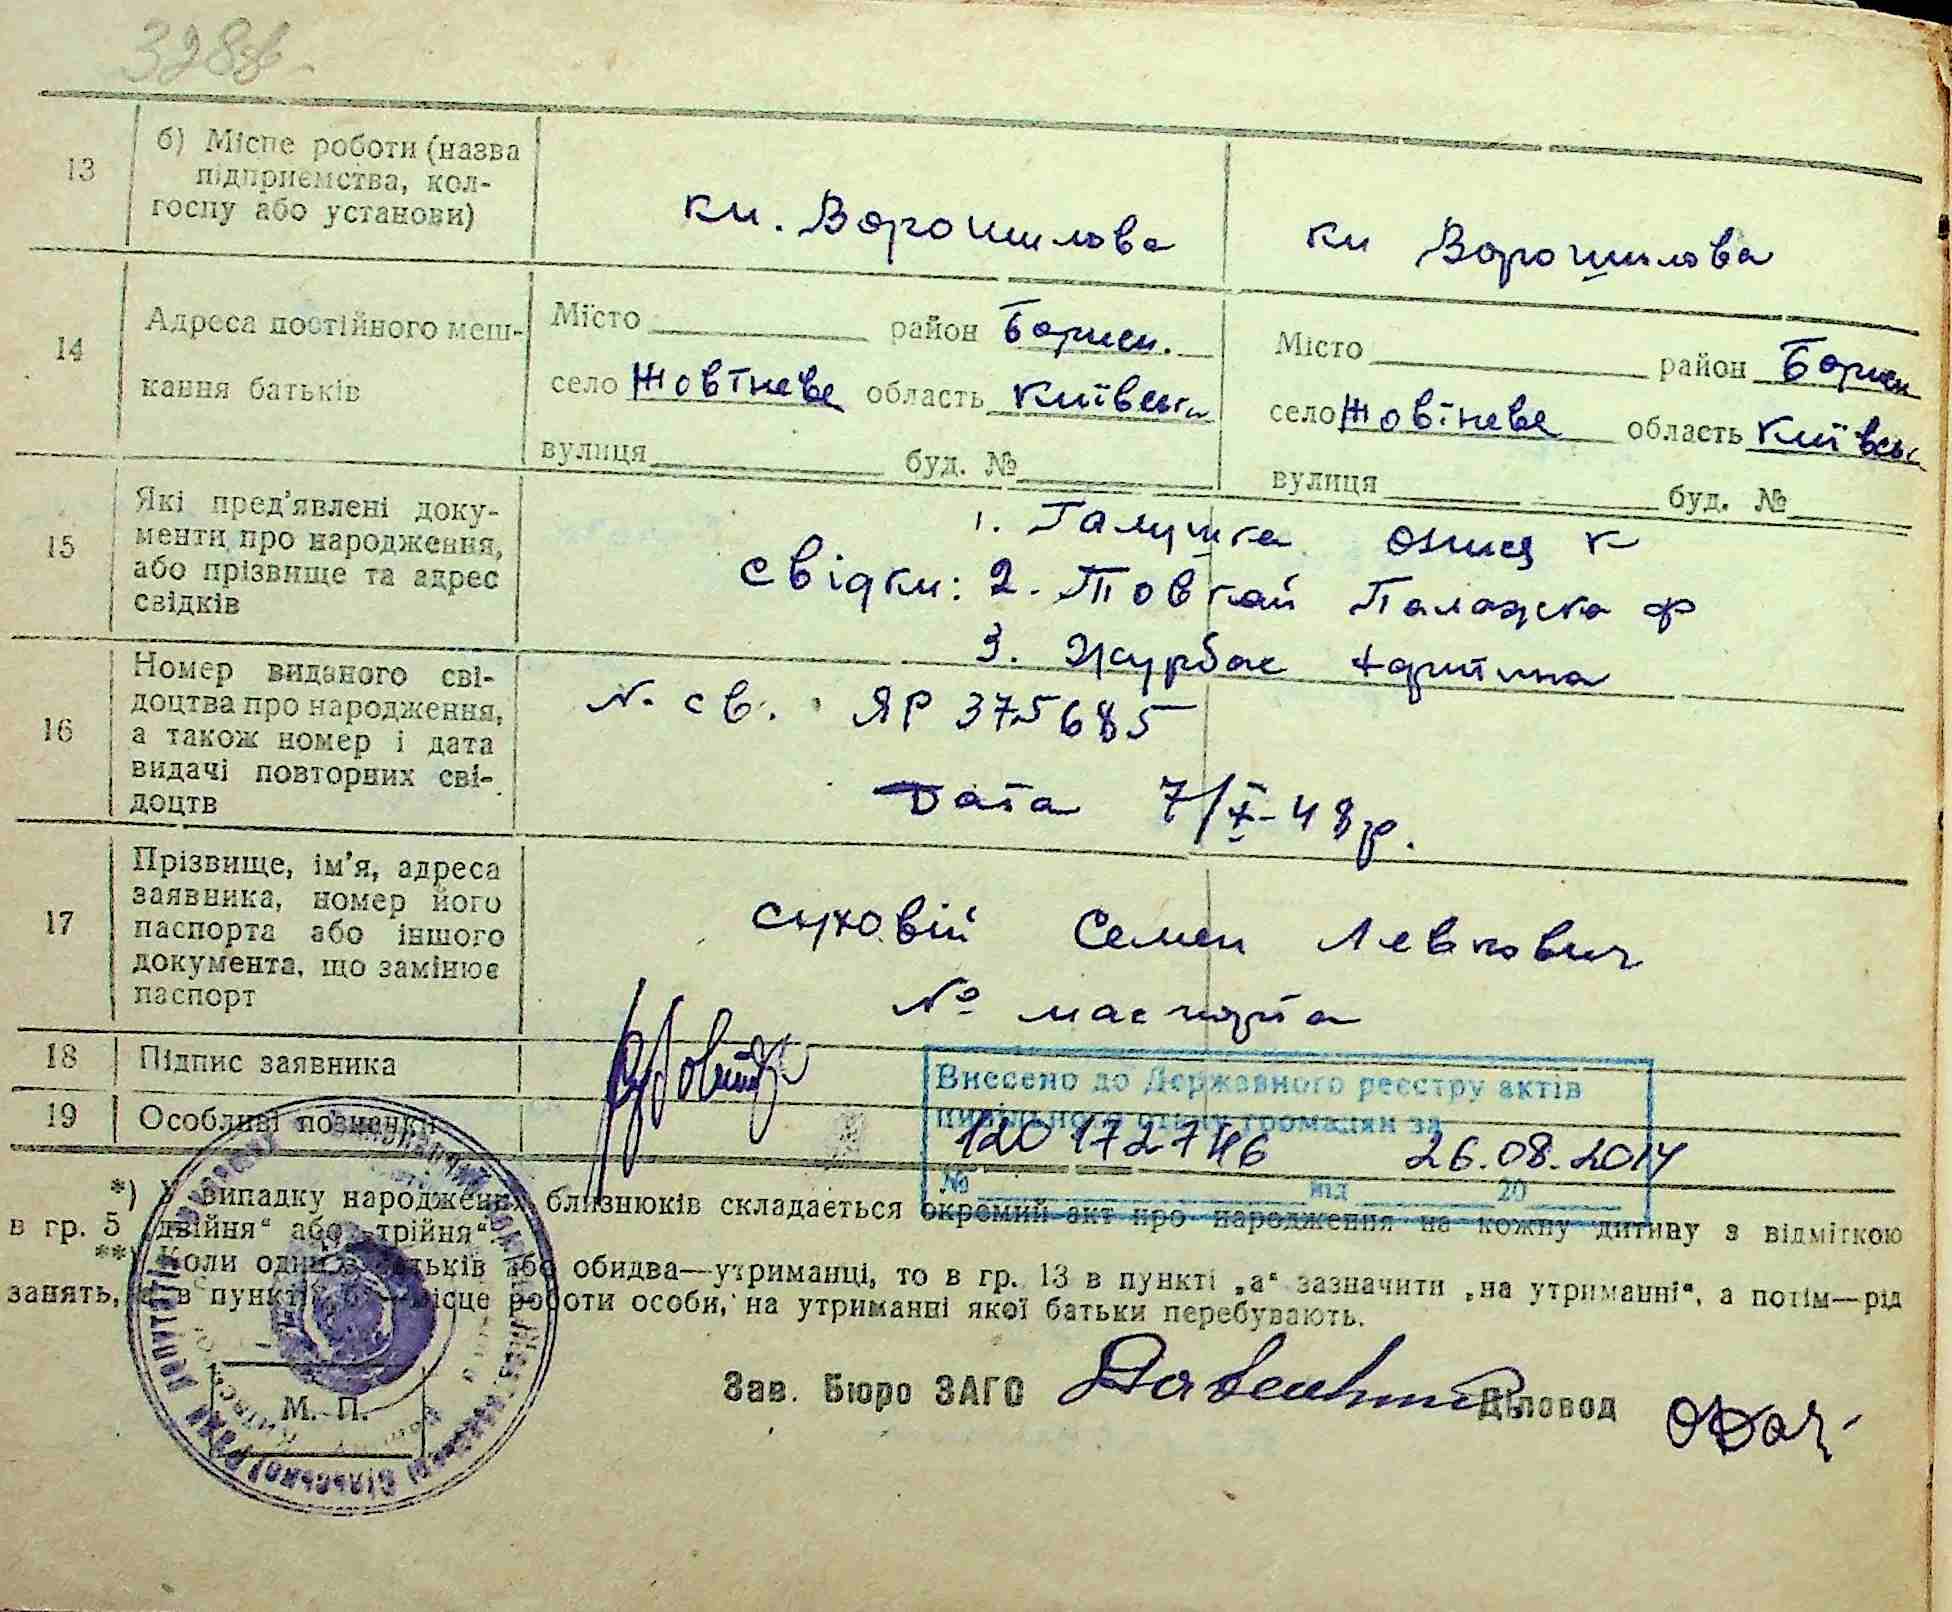 328
13
б) Місце роботи (назва
підприємства, кол-
госпу або установи)
км. Ворошилова
км Ворошилова
14
Адреса постійного меш-
кання батьків
Місто район Борисп.
село Жовтневе область Київськ
вулиця буд. №
Місто район Борисп
село Жовтневе область Київськ
вулиця буд. №
15
Які пред'явлені доку-
менти про народження,
або прізвище та адрес
свідків
1. Галушка К
свідки: 2. Товкай Палажка Ф
3.
16
Номер виданого сві-
доцтва про народження,
а також номер і дата
видачі повторних сві-
доцтв
N. св. ЯР 375685
Дата 7/X-48р.
17
Прізвище, ім'я, адреса
заявника, номер його
паспорта або іншого
документа, що замінює
паспорт
Суховій Семен Левкович
№ паспорта
18
Підпис заявника
19
Особливі позначки
Внесено до Державного реєстру актів
цивільного стану громадян за
№ 120172746 від 26.08.2014
*) У випадку народження близнюків складається окремий акт про народження на кожну дитину з відміткою
в гр. 5 „двійня“ або „трійня“.
**) Коли один з батьків або обидва—утриманці, то в гр. 13 в пункті „а“ зазначити „на утриманні“, а потім—рід
занять, а в пункті б) місце роботи особи, на утриманні якої батьки перебувають.
Зав. Бюро ЗАГС
Діловод
М. П.